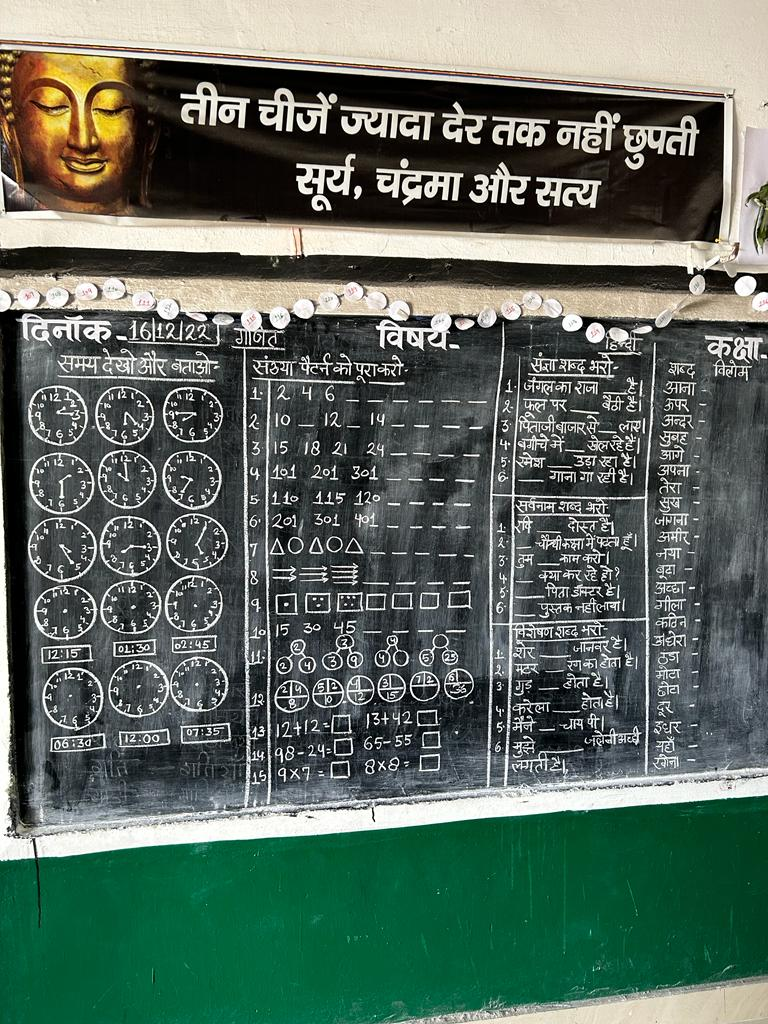 तीन चीजें ज्यादा देर तक नहीं छुपती
सूर्य, चंद्रमा और सत्य
दिनाँक- 16/12/22
गणित
विषय-
हिन्दी
कक्षा-
समय देखो और बताओ-
12:15 01:30 02:45
06:30 12:00 07:35
संख्या पैटर्न को पूरा करो-
1. 2 4 6 _ _ _ _ _
2. 10 _ 12 _ 14 _ _ _ _
3. 15 18 21 24 _ _ _ _
4. 101 201 301 _ _ _ _
5. 110 115 120 _ _ _ _
6. 201 301 401 _ _ _ _
7. △ ○ △ ○ △ _ _ _ _
8.
9.
10. 15 30 45 _ _ _ _
11. 2 2 4 3 3 9 4 5 25
12.
13. 12+12=□ 13+42 □
14. 98-24=□ 65-55 □
15. 9×7=□ 8×8=□
संज्ञा शब्द भरो-
1. जंगल का राजा __ है।
2. फूल पर __ बैठी है।
3. पिताजी बाजार से __ लाए।
4. बगीचे में __ खेल रहे हैं।
5. रमेश __ उड़ा रहा है।
6. __ गाना गा रही है।
सर्वनाम शब्द भरो-
1. रवि __ दोस्त है।
2. __ चौथी कक्षा में पढ़ता हूँ।
3. तुम __ काम करो।
4. __ क्या कर रहे हो?
5. __ पिता डॉक्टर है।
6. __ पुस्तक नहीं लाया।
विशेषण शब्द भरो-
1. शेर __ जानवर है।
2. मटर __ रंग का होता है।
3. गुड़ __ होता है।
4. करेला __ होता है।
5. मैंने __ चाय पी।
6. मुझे __ जलेबी अच्छी
लगती है।
शब्द विलोम
आना -
ऊपर -
अन्दर -
सुबह -
आगे -
अपना -
तेरा -
सुख -
जागना -
अमीर -
नया -
बूढ़ा -
अच्छा -
गीला -
कठिन -
अंधेरा -
ठंडा -
मोटा -
छोटा -
दूर -
इधर -
यहाँ -